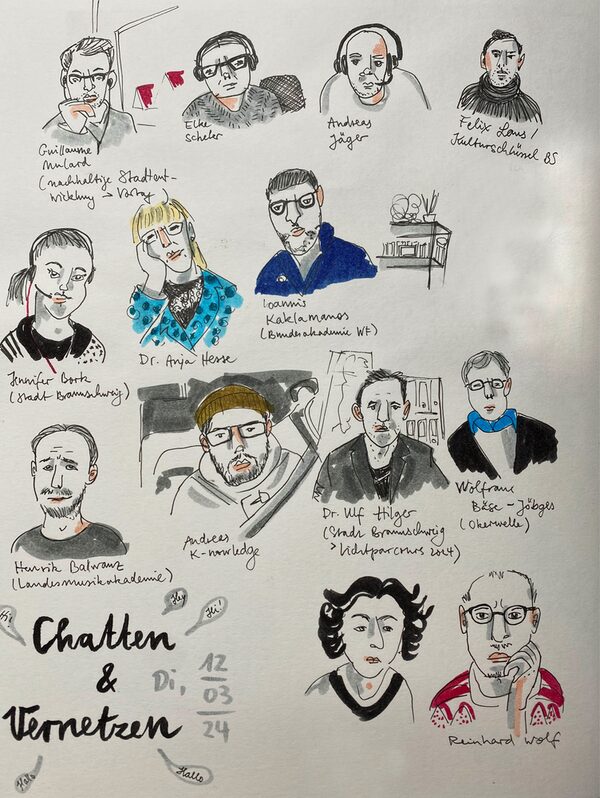 Guillaume
Mulard
(nachhaltige Stadtent-
wicklung → Vortrag
Elke
Scheler
Andreas
Jäger
Felix Laus /
Kulturschlüssel BS
Jennifer Bork
(Stadt Braunschweig)
Dr. Anja Hesse
Ioannis
Kaklamanos
(Bundesakademie WF)
Henrik Balwanz
(Landesmusikakademie)
Andreas
K-nowledge
Dr. Ulf Hilger
(Stadt Braunschweig
> Lichtparcours 2024)
Wolfram
Bäse-Jöbges
(Okerwelle)
Hi!
Hey
Hi!
Chatten
&
Vernetzen
Di, 12
03
24
Hallo
Hallo
Reinhard Wolf